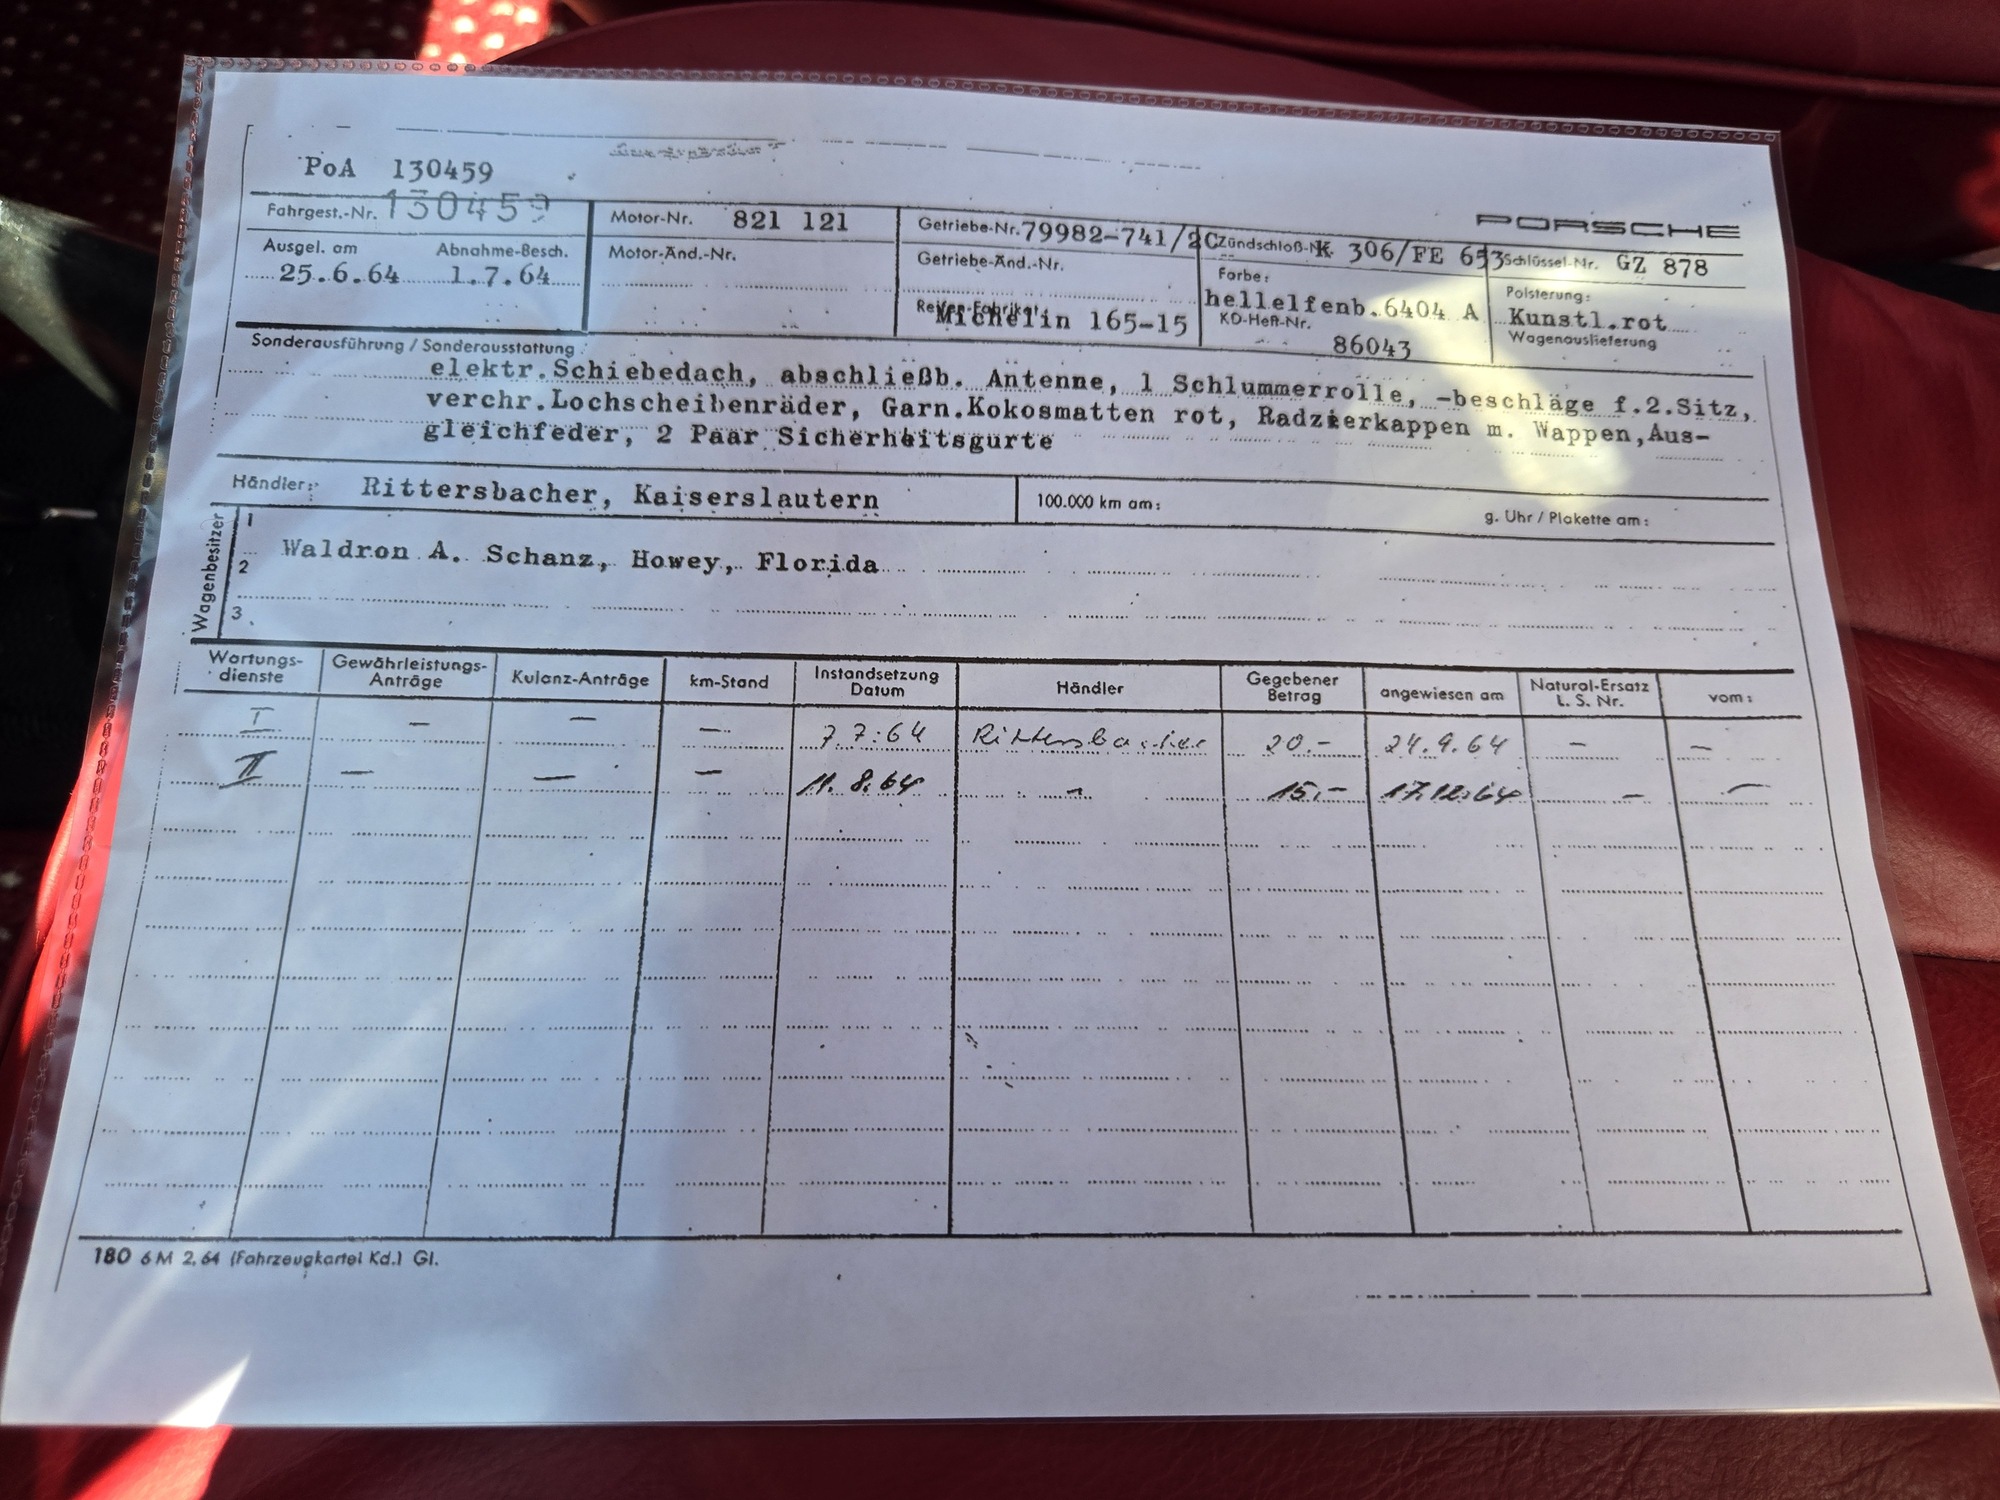 PoA 130459
PORSCHE
Fahrgest.-Nr. 130459
Motor-Nr. 821 121
Getriebe-Nr. 79982-741/2C
Zündschloß-Nr. K 306/FE 653
Schlüssel-Nr. GZ 878
Ausgel. am 25.6.64
Abnahme-Besch. 1.7.64
Motor-Änd.-Nr.
Getriebe-Änd.-Nr.
Farbe: hellelfenb. 6404 A
Polsterung: Kunstl.rot
Reifen-Fabrikat: Michelin 165-15
KD-Heft-Nr. 86043
Wagenauslieferung
Sonderausführung / Sonderausstattung
elektr.Schiebedach, abschließb. Antenne, 1 Schlummerrolle, -beschläge f.2.Sitz,
verchr.Lochscheibenräder, Garn.Kokosmatten rot, Radzierkappen m. Wappen,Aus-
gleichfeder, 2 Paar Sicherheitsgurte
Händler: Rittersbacher, Kaiserslautern
100.000 km am:
g. Uhr / Plakette am:
Wagenbesitzer
1
Waldron A. Schanz, Howey, Florida
2
3
Wartungs-dienste Gewährleistungs-Anträge Kulanz-Anträge km-Stand Instandsetzung Datum Händler Gegebener Betrag angewiesen am Natural-Ersatz L. S. Nr. vom:
I — — — 7.7.64 Rittersbacher 20.- 24.9.64 — —
II — — — 11.8.64 " 15.- 17.12.64 — —
180 6M 2.64 (Fahrzeugkartei Kd.) Gl.